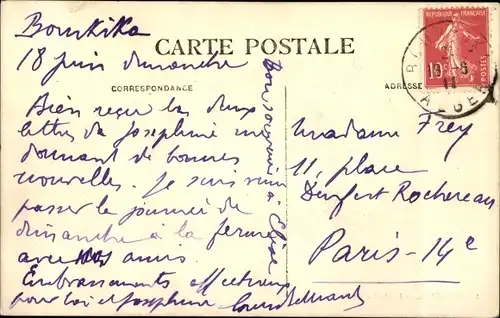 Bourkika
18 juin dimanche
CARTE POSTALE
CORRESPONDANCE
ADRESSE
REPUBLIQUE FRANÇAISE
10
POSTES
ALGER
Bien reçu les deux
lettres de Josephine me
donnant de bonnes
nouvelles. Je suis venu
passer la journée de
dimanche à la ferme
avec amis
Embrassements affectueux
pour toi et Josephine
Bon souvenir à
Madame Frey
11, place
Denfert Rochereau
Paris-14e